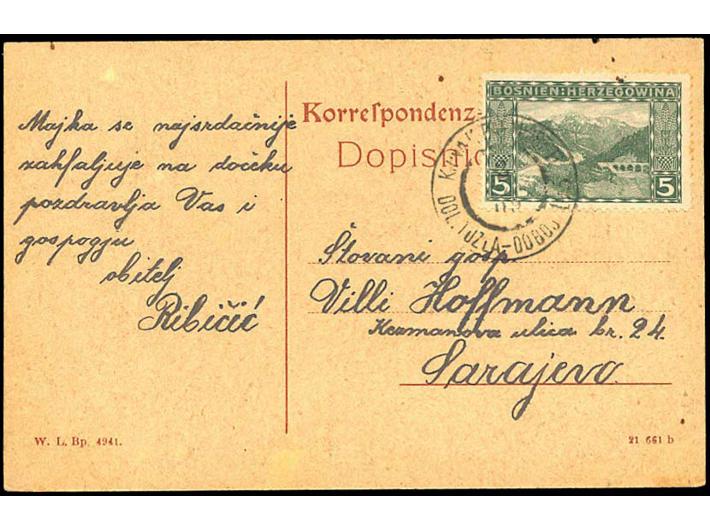 Majka se najsrdačnije
zahfaljuje na dočeku
pozdravlja Vas i
gospogju
obitelj
Ribičić
W. L. Bp. 4941.
Korrespondenz
Dopisnic
BOSNIEN:HERZEGOWINA
5 5
DOL. TUZLA-DOBOJ
Štovani gosp.
Villi Hoffmann
Kezmanova ulica br. 24.
Sarajevo.
21 661 b